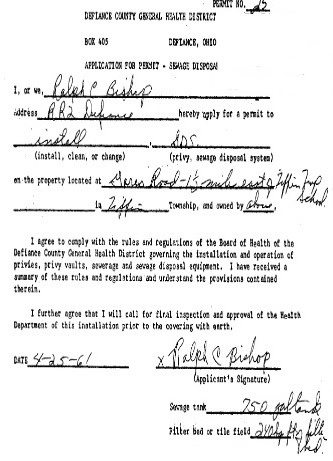 PERMIT NO. 25
DEFIANCE COUNTY GENERAL HEALTH DISTRICT
BOX 405 DEFIANCE, OHIO
APPLICATION FOR PERMIT - SEWAGE DISPOSAL
I, or we, Ralph C Bishop
Address RR2 Defiance hereby apply for a permit to
install , SDS
(install, clean, or change) (privy, sewage disposal system)
on the property located at Road - 1½ mile east of Tiffin Twp School
in Tiffin Township, and owned by above.
I agree to comply with the rules and regulations of the Board of Health of the
Defiance County General Health District governing the installation and operation of
privies, privy vaults, sewerage and sewage disposal equipment. I have received a
summary of these rules and regulations and understand the provisions contained
therein.
I further agree that I will call for final inspection and approval of the Health
Department of this installation prior to the covering with earth.
DATE 4-25-61 x Ralph C Bishop
(Applicant's Signature)
Sewage tank 750 gal tank
Filter bed or tile field 240 sq ft filter bed.